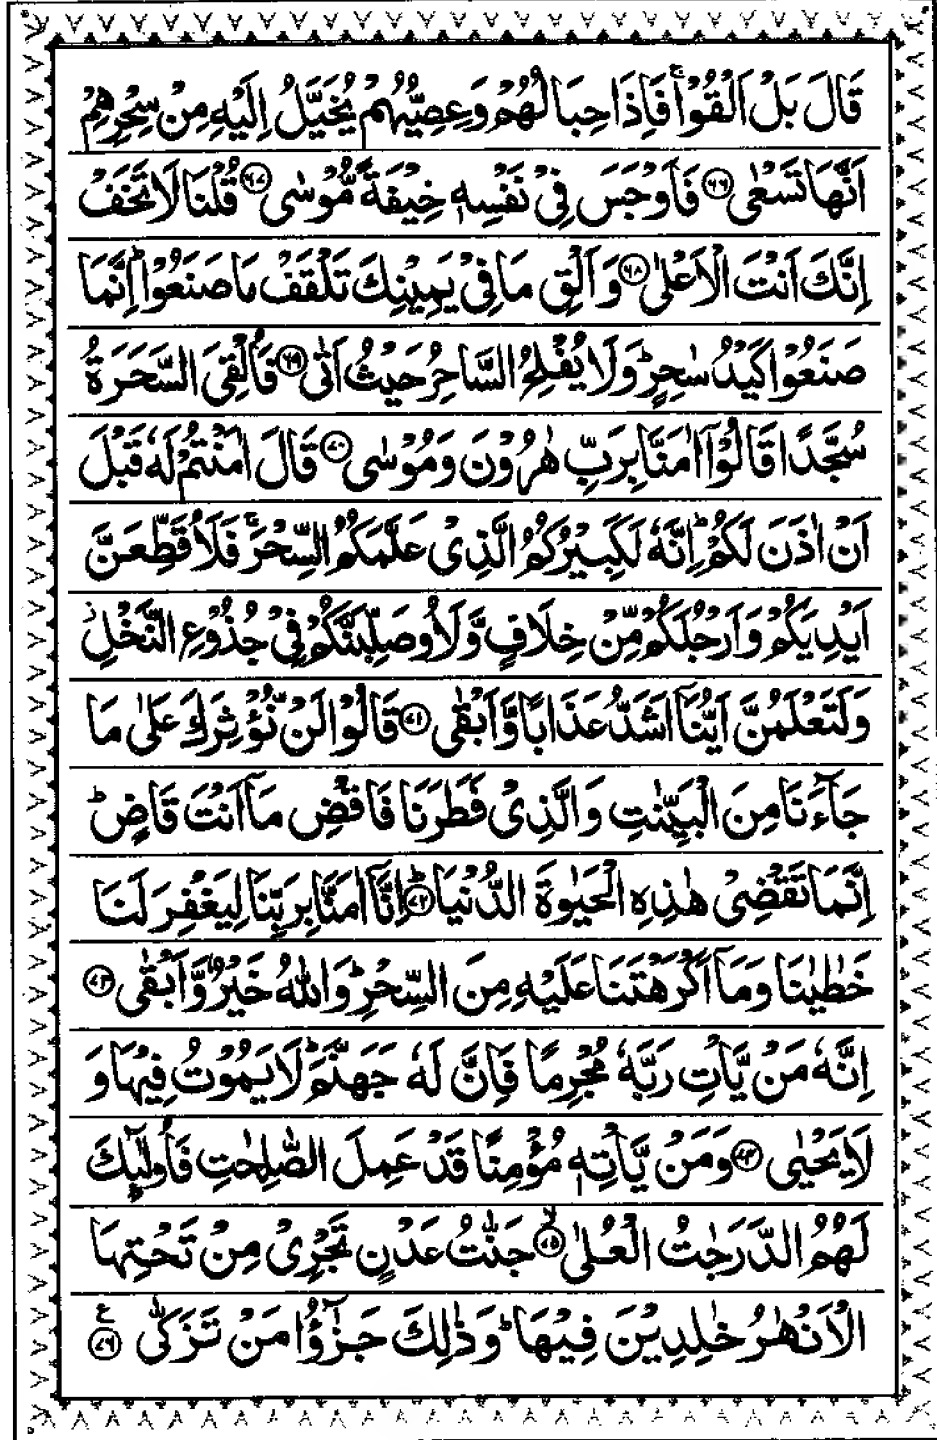 قَالَ بَلْ اَلْقُوْا ۚ فَاِذَا حِبَالُهُمْ وَعِصِیُّهُمْ یُخَیَّلُ اِلَیْهِ مِنْ سِحْرِهِمْ
اَنَّهَا تَسْعٰی ﴿۶۶﴾ فَاَوْجَسَ فِیْ نَفْسِهٖ خِیْفَةً مُّوْسٰی ﴿۶۷﴾ قُلْنَا لَا تَخَفْ
اِنَّكَ اَنْتَ الْاَعْلٰی ﴿۶۸﴾ وَ اَلْقِ مَا فِیْ یَمِیْنِكَ تَلْقَفْ مَا صَنَعُوْا ؕ اِنَّمَا
صَنَعُوْا كَیْدُ سٰحِرٍ ؕ وَلَا یُفْلِحُ السَّاحِرُ حَیْثُ اَتٰی ﴿۶۹﴾ فَاُلْقِیَ السَّحَرَةُ
سُجَّدًا قَالُوْۤا اٰمَنَّا بِرَبِّ هٰرُوْنَ وَمُوْسٰی ﴿۷۰﴾ قَالَ اٰمَنْتُمْ لَهٗ قَبْلَ
اَنْ اٰذَنَ لَكُمْ ؕ اِنَّهٗ لَكَبِیْرُكُمُ الَّذِیْ عَلَّمَكُمُ السِّحْرَ ۚ فَلَاُقَطِّعَنَّ
اَیْدِیَكُمْ وَ اَرْجُلَكُمْ مِّنْ خِلَافٍ وَّلَاُوصَلِّبَنَّكُمْ فِیْ جُذُوْعِ النَّخْلِ ؗ
وَلَتَعْلَمُنَّ اَیُّنَاۤ اَشَدُّ عَذَابًا وَّاَبْقٰی ﴿۷۱﴾ قَالُوْا لَنْ نُّؤْثِرَكَ عَلٰی مَا
جَآءَنَا مِنَ الْبَیِّنٰتِ وَ الَّذِیْ فَطَرَنَا فَاقْضِ مَاۤ اَنْتَ قَاضٍ ؕ
اِنَّمَا تَقْضِیْ هٰذِهِ الْحَیٰوةَ الدُّنْیَا ؕ ﴿۷۲﴾ اِنَّاۤ اٰمَنَّا بِرَبِّنَا لِیَغْفِرَ لَنَا
خَطٰیٰنَا وَمَاۤ اَكْرَهْتَنَا عَلَیْهِ مِنَ السِّحْرِ ؕ وَاللّٰهُ خَیْرٌ وَّاَبْقٰی ﴿۷۳﴾
اِنَّهٗ مَنْ یَّاْتِ رَبَّهٗ مُجْرِمًا فَاِنَّ لَهٗ جَهَنَّمَ ؕ لَا یَمُوْتُ فِیْهَا وَ
لَا یَحْیٰی ﴿۷۴﴾ وَمَنْ یَّاْتِهٖ مُؤْمِنًا قَدْ عَمِلَ الصّٰلِحٰتِ فَاُولٰٓىِٕكَ
لَهُمُ الدَّرَجٰتُ الْعُلٰی ۙ ﴿۷۵﴾ جَنّٰتُ عَدْنٍ تَجْرِیْ مِنْ تَحْتِهَا
الْاَنْهٰرُ خٰلِدِیْنَ فِیْهَا ؕ وَ ذٰلِكَ جَزٰٓؤُا مَنْ تَزَكّٰی ﴿۷۶﴾ ع